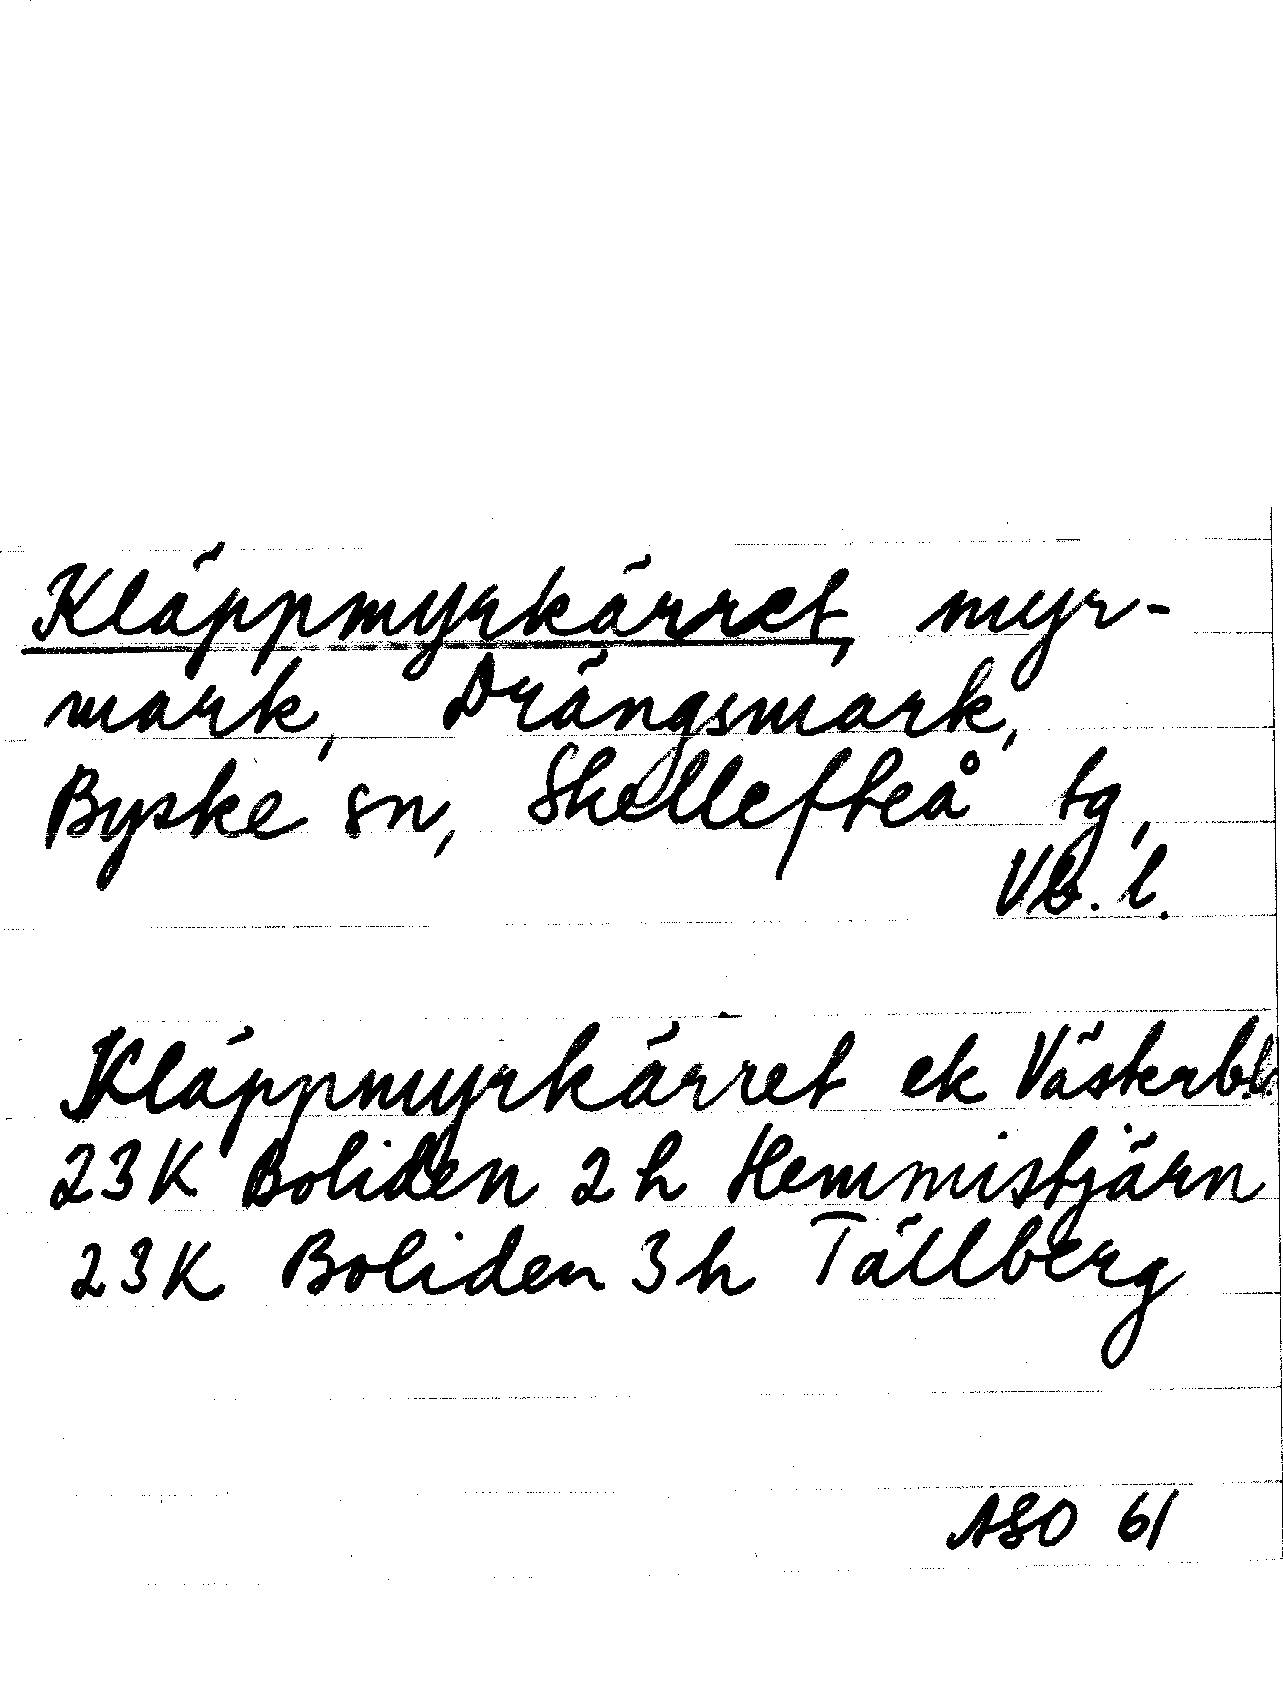 Kläppmyrkärret, myr-
mark, Drängsmark,
Byske sn, Skellefteå tg,
Vb. l.
Kläppmyrkärret ek Västerb.l.
23K Boliden 2h Hemmistjärn
23K Boliden 3h Tällberg
ASO 61